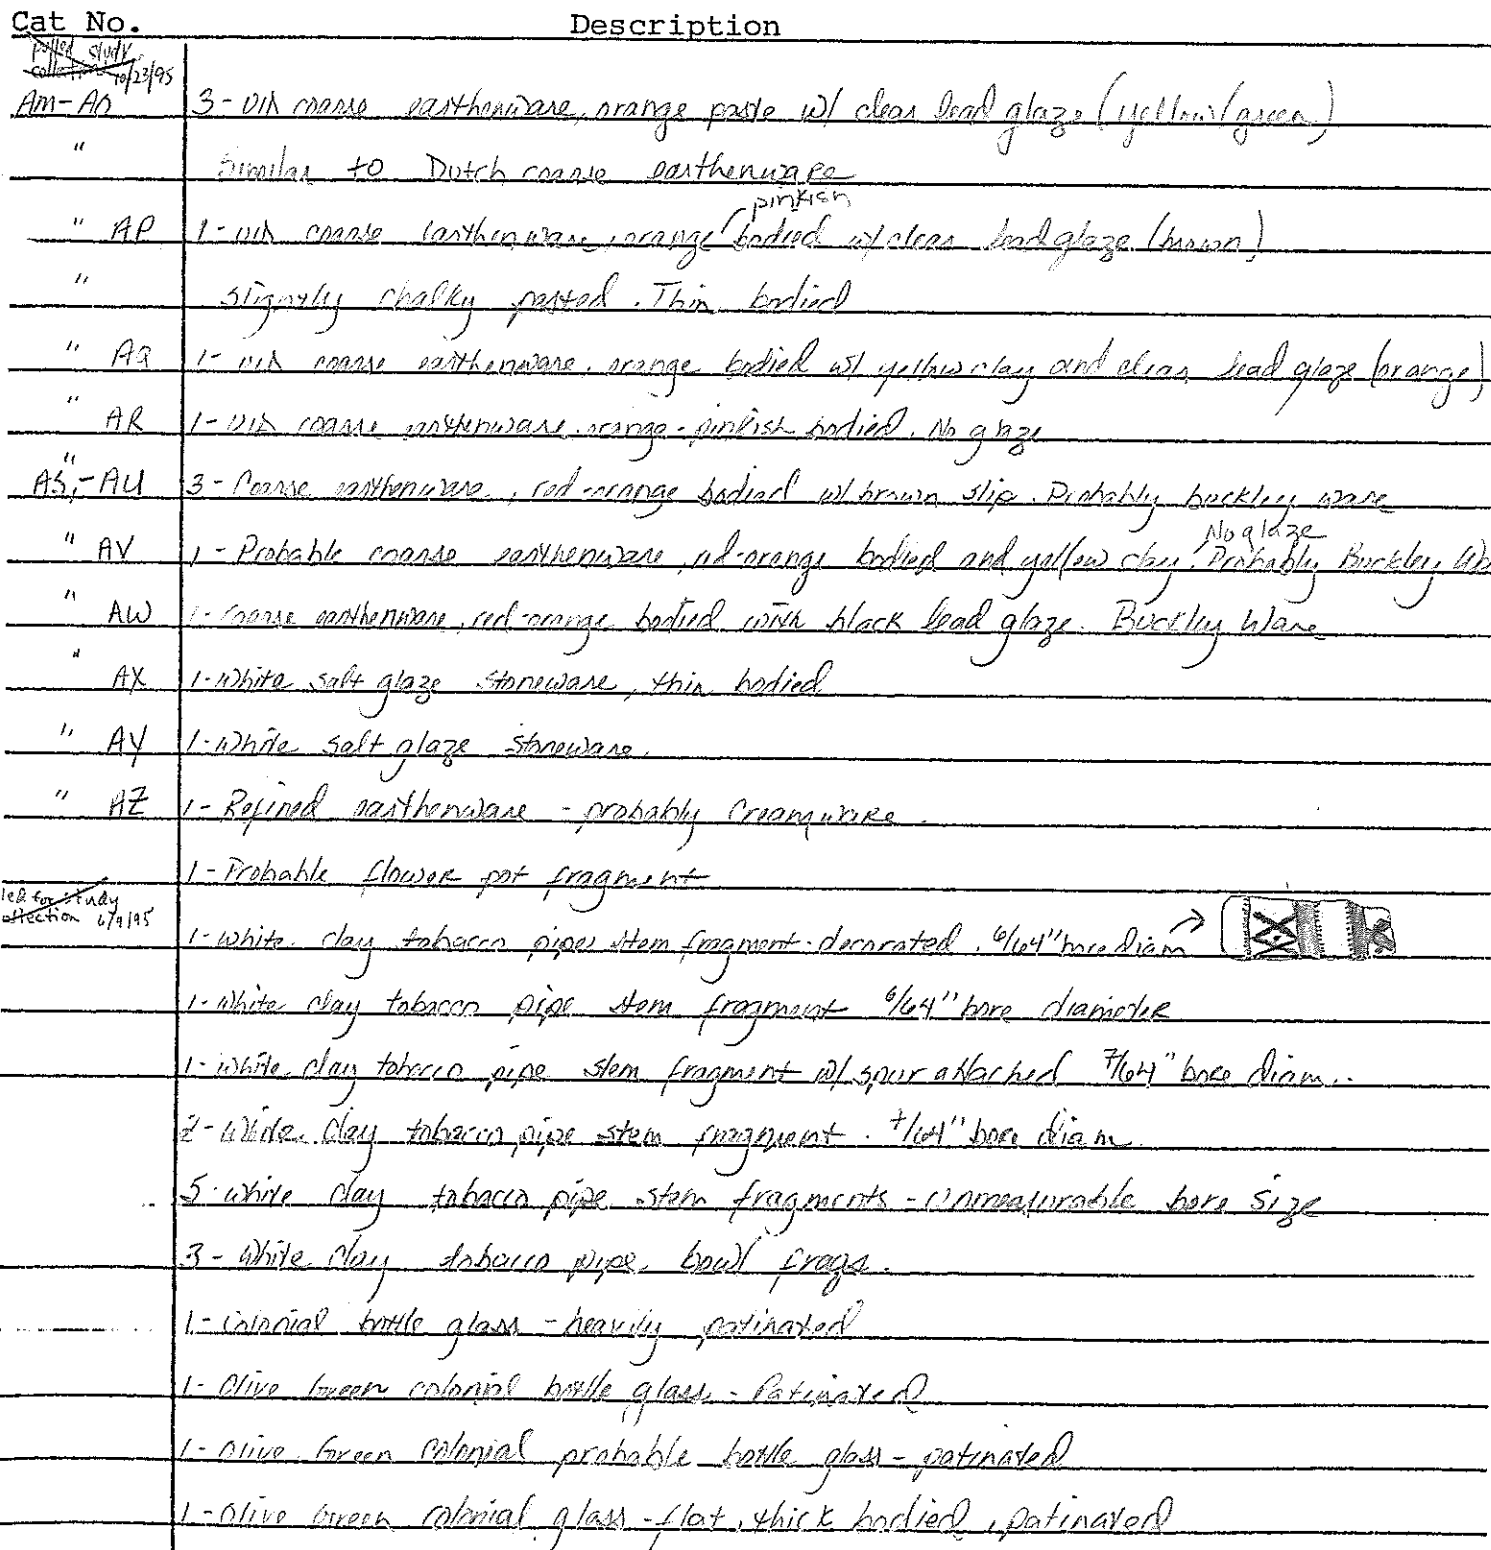 Cat No. Description
pulled study
collection 10/23/95
AM-AO 3- UID coarse earthenware, orange paste w/ clear lead glaze (yellow/green)
" Similar to Dutch coarse earthenware
pinkish
" AP 1- UID coarse earthenware, orange bodied w/ clear lead glaze (brown)
" slightly chalky pasted. Thin bodied
" AQ 1- UID coarse earthenware, orange bodied w/ yellow clay and clear lead glaze (orange)
" AR 1- UID coarse earthenware. orange-pinkish bodied. No glaze
"
AS,-AU 3- Coarse earthenware, red-orange bodied w/ brown slip. Probably buckley ware
No glaze
" AV 1- Probable coarse earthenware, red-orange bodied and yellow clay. Probably Buckley Wa
" AW 1- coarse earthenware, red-orange bodied with black lead glaze. Buckley Ware
" AX 1- White salt glaze stoneware, thin bodied
" AY 1- White salt glaze stoneware.
" AZ 1- Refined earthenware - probably Creamware.
1- Probable flower pot fragment
led for study
ollection 6/9/95
1- White clay tobacco pipes stem fragment- decorated. 6/64" bore diam →
1- White clay tobacco pipe stem fragment 6/64" bore diameter
1- white clay tobacco pipe stem fragment w/ spur attached 7/64" bore diam..
2- White clay tobacco pipe stem fragment. 7/64" bore diam.
5- white clay tobacco pipe stem fragments - unmeasurable bore size
3- White clay tobacco pipe bowl frags.
1- Colonial bottle glass - heavily patinated
1- Olive Green colonial bottle glass - Patinated
1- Olive Green Colonial probable bottle glass - patinated
1- Olive Green colonial glass - flat, thick bodied, patinated